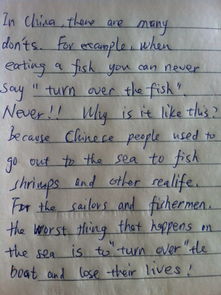 In China, there are many
don'ts. For example, when
eating a fish you can never
say "turn over the fish".
Never!! Why is it like this?
Because Chinese people used to
go out to the sea to fish
shrimps and other sealife.
For the sailors and fishermen,
the worst thing that happens on
the sea is to "turn over" the
boat and lose their lives!